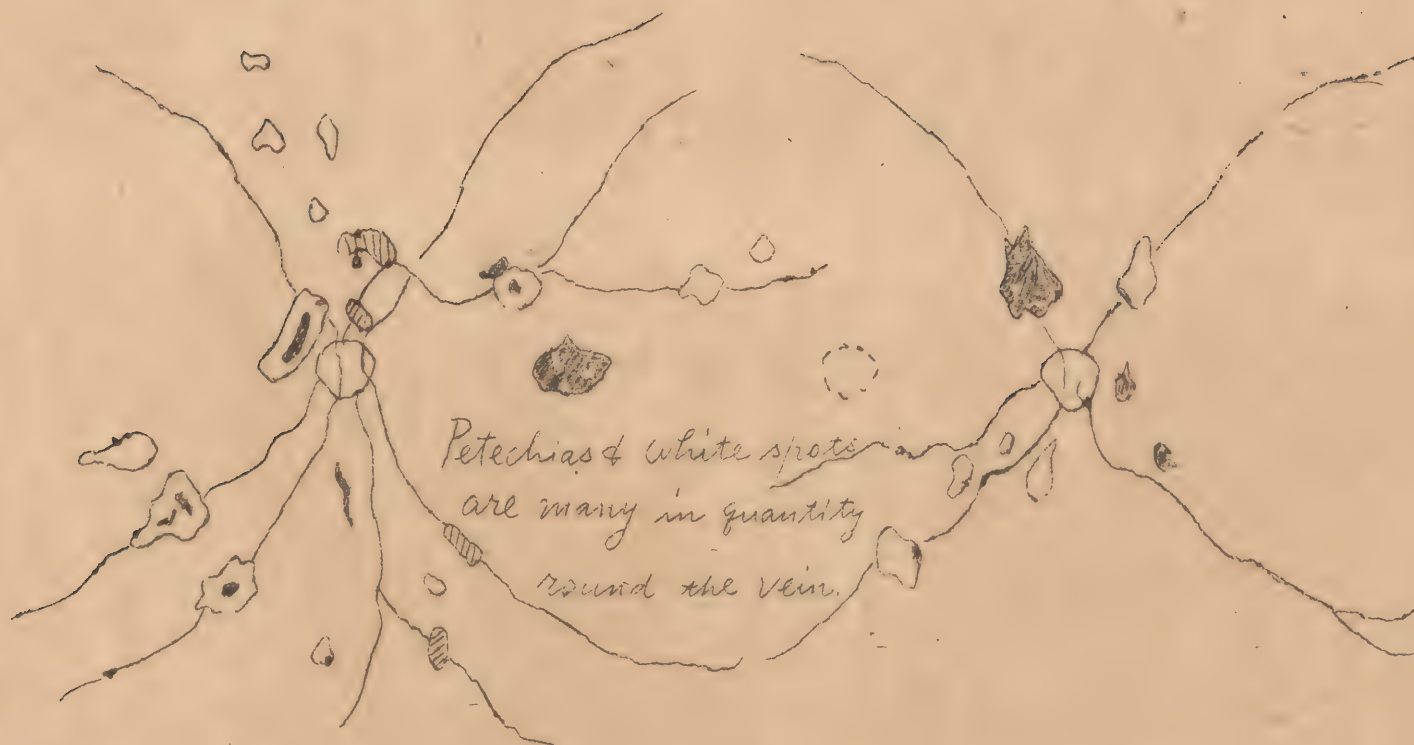 Petechias & white spots
are many in quantity
round the vein.